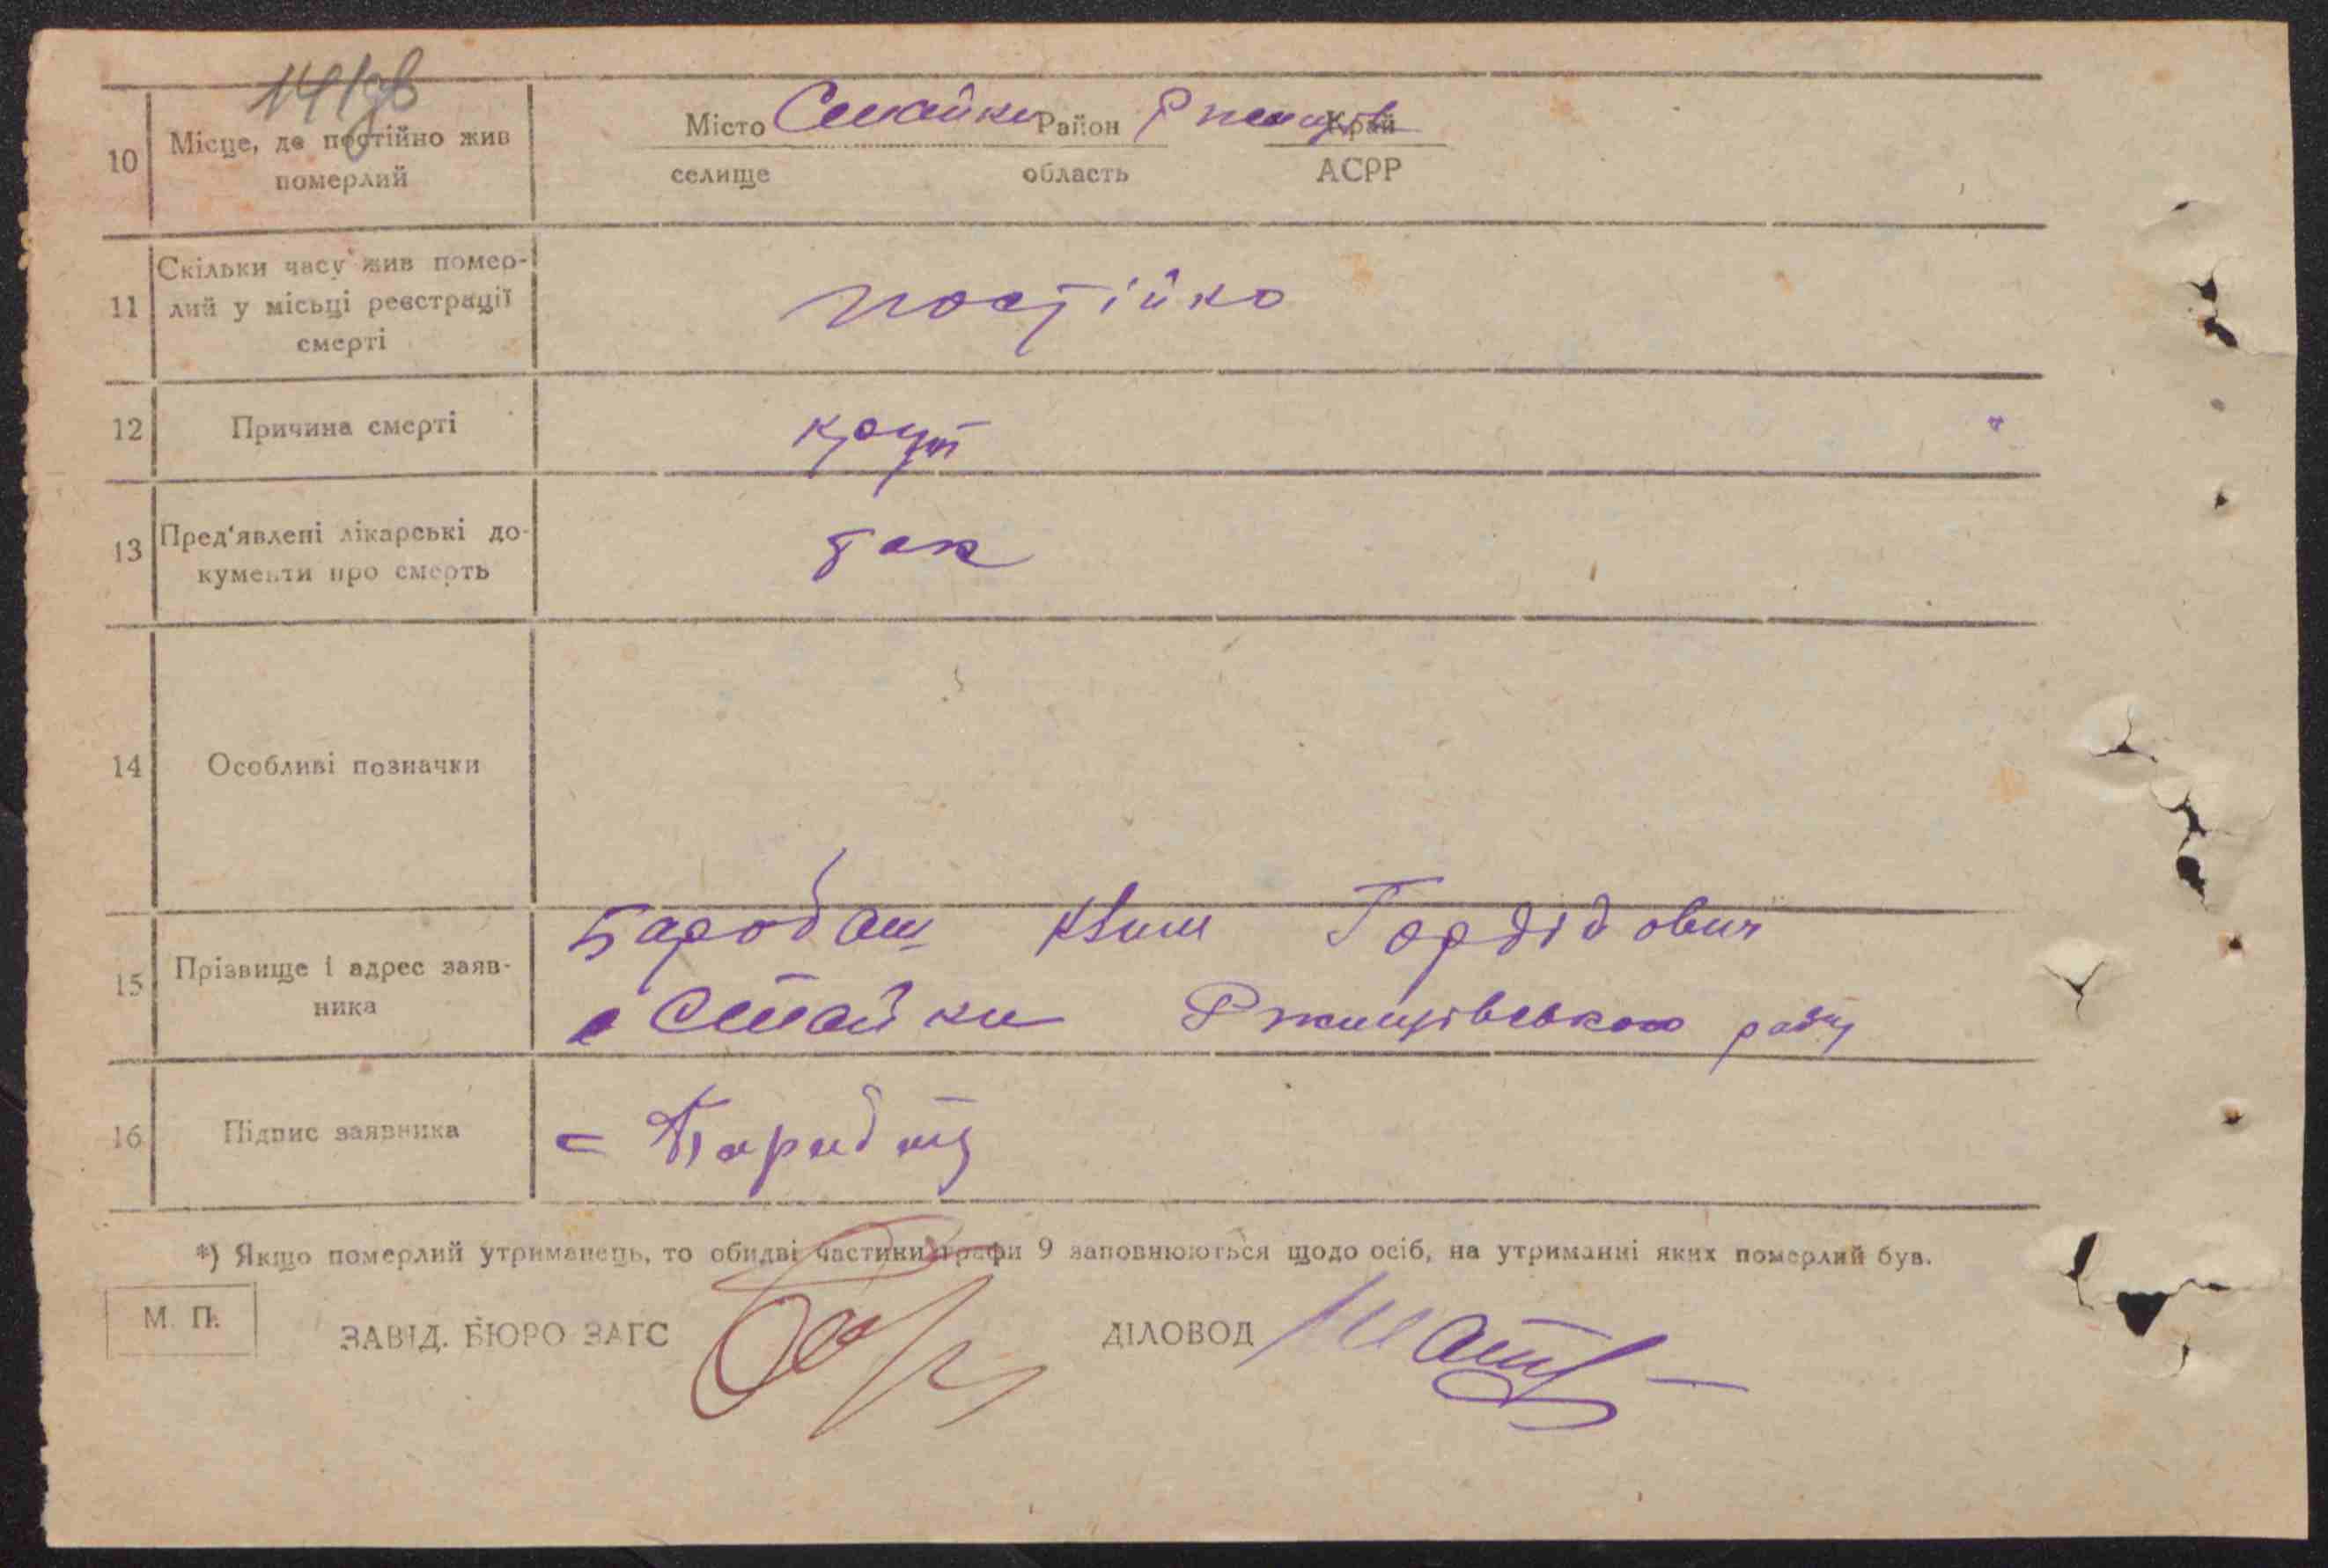 10 Місце, де постійно жив померлий
Місто Стайки Район Ржищів Край
селище область АСРР
11 Скільки часу жив помер-
лий у місьці реєстрації
смерті
постійно
12 Причина смерті
круп
13 Пред'явлені лікарські до-
кументи про смерть
так
14 Особливі позначки
15 Прізвище і адрес заяв-
ника
Барабаш Юхим Гордідович
с Стайки Ржищівського раëну
16 Підпис заявника
*) Якщо померлий утриманець, то обидві частини графи 9 заповнюються щодо осіб, на утриманні яких померлий був.
М. П.
ЗАВІД. БЮРО ЗАГС
ДІЛОВОД